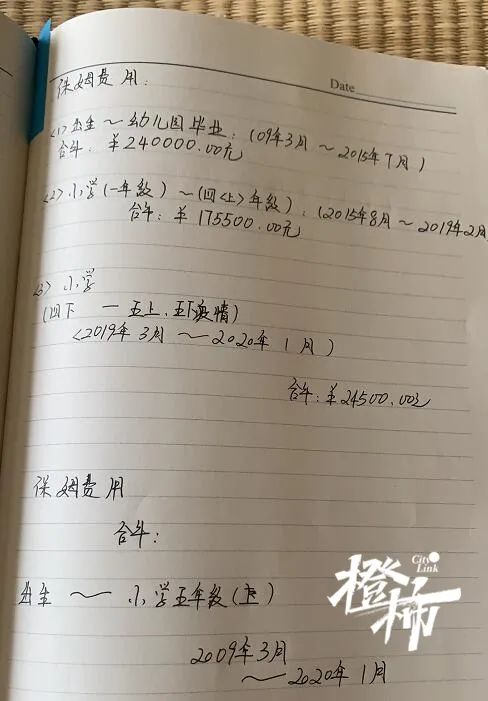 Date
保姆费用:
<1>出生~幼儿园毕业:(09年3月~2015年7月)
合计:¥240000.00元
<2>小学(一年级)~(四<上>年级):(2015年8月~2019年2月
合计:¥175500.00元
<3>小学
(四下—五上、五下疫情)
<2019年3月~2020年1月)
合计:¥24500.00元
保姆费用
合计:
出生~小学五年级(上)
2009年3月
~2020年1月
City Link
橙柿